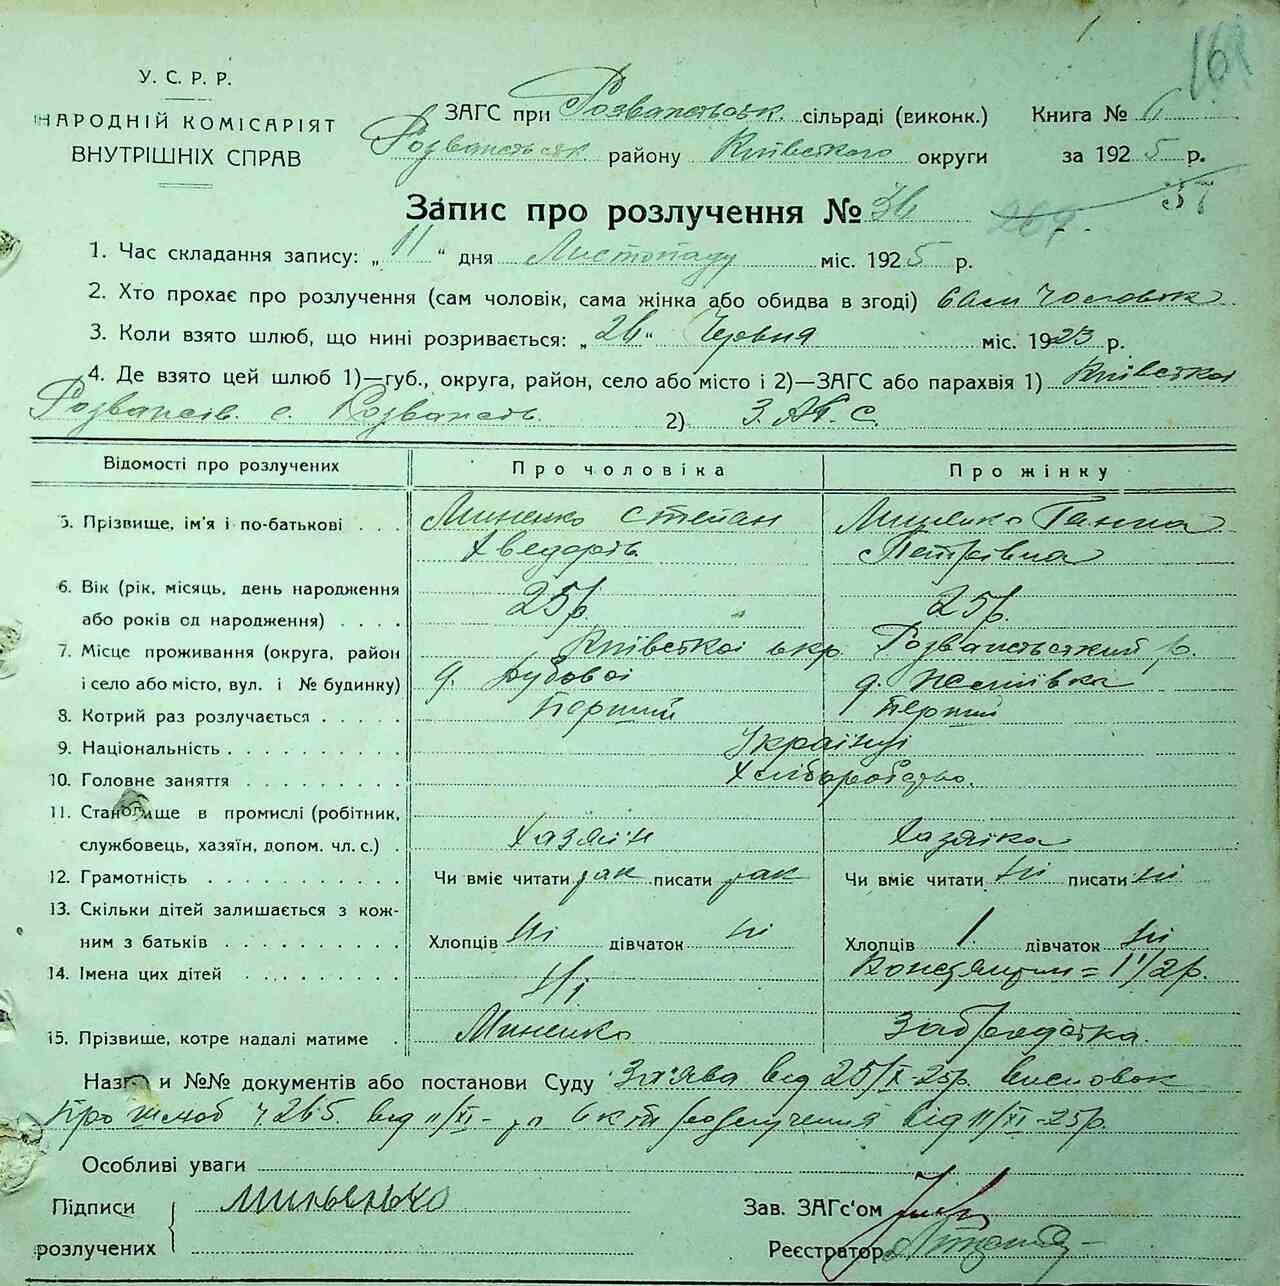 161
У. С. Р. Р.
НАРОДНІЙ КОМІСАРІЯТ
ВНУТРІШНІХ СПРАВ
ЗАГС при Розваженськ. сільраді (виконк.) Книга № 6
Розваженськ району Київсткого округи за 1925 р.
Запис про розлучення № 36 37
1. Час складання запису: „11“ дня Листопаду міс. 1925 р.
2. Хто прохає про розлучення (сам чоловік, сама жінка або обидва в згоді) сам чоловік
3. Коли взято шлюб, що нині розривається: „26“ Червня міс. 1923 р.
4. Де взято цей шлюб 1)—губ., округа, район, село або місто і 2)—ЗАГС або парахвія 1) Київсткоі
с. 2) З.А.Г.С.
Відомості про розлучених Про чоловіка Про жінку
5. Прізвище, ім'я і по-батькові . . . Миненко Степан Миненко Ганна
Хведоров. Петрівна
6. Вік (рік, місяць, день народження
або років од народження) . . . . 25р. 25р.
7. Місце проживання (округа, район Київсткоі окр. Розваженсткий р.
і село або місто, вул. і № будинку) д. Дубовоі д.
8. Котрий раз розлучається . . . . . Перший Перший
9. Національність . . . . . . . . . . Українці
10. Головне заняття . . . . . . . . . Хліборобство.
11. Становище в промислі (робітник,
службовець, хазяїн, допом. чл. с.) . Хазяїн Хазяїка
12. Грамотність . . . . . . . . . . Чи вміє читати так писати так Чи вміє читати ні писати ні
13. Скільки дітей залишається з кож-
ним з батьків . . . . . . . . . . Хлопців ні дівчаток ні Хлопців 1. дівчаток ні
14. Імена цих дітей . . . . . . . . . Ні Константин = 1 1/2 р.
15. Прізвище, котре надалі матиме . Миненко
Назви и №№ документів або постанови Суду Зн'ява від 25/X-25р. висновок
про шлюб ч. 265. від 11/XI- розлучення від 11/XI-25р.
Особливі уваги
Підписи Миненько Зав. ЗАГс'ом
розлучених Реєстратор